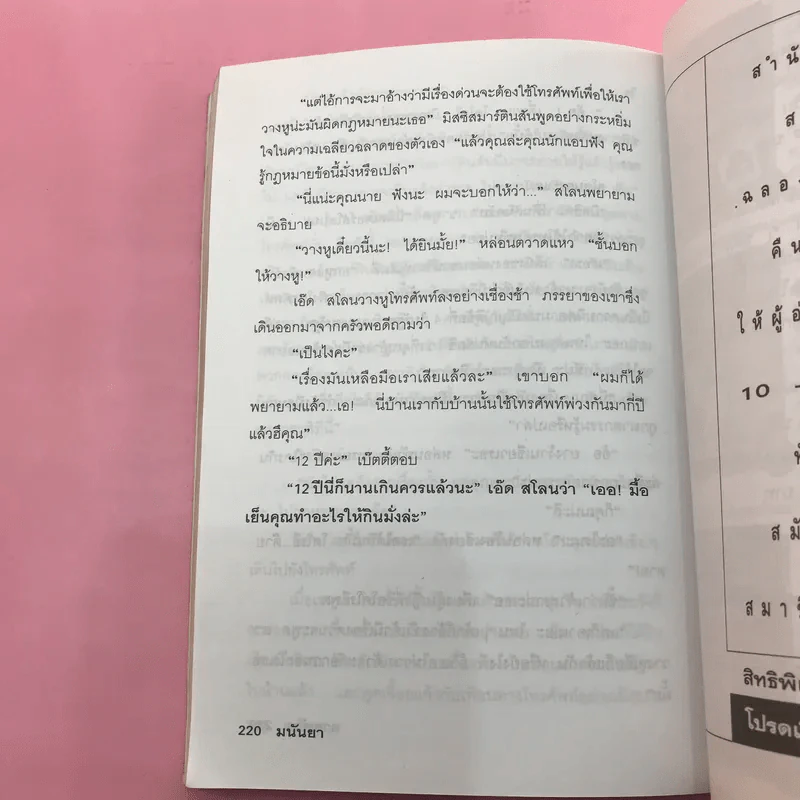 “แต่ไอ้การจะมาอ้างว่ามีเรื่องด่วนจะต้องใช้โทรศัพท์เพื่อให้เรา
วางหูน่ะมันผิดกฎหมายนะเธอ” มิสซิสมาร์ตินสันพูดอย่างกระหยิ่ม
ใจในความเฉลียวฉลาดของตัวเอง “แล้วคุณล่ะคุณนักแอบฟัง คุณ
รู้กฎหมายข้อนี้มั่งหรือเปล่า”
“นี่แน่ะคุณนาย ฟังนะ ผมจะบอกให้ว่า...” สโลนพยายาม
จะอธิบาย
“วางหูเดี๋ยวนี้นะ! ได้ยินมั้ย!” หล่อนตวาดแหว “ชั้นบอก
ให้วางหู!”
เอ๊ด สโลนวางหูโทรศัพท์ลงอย่างเชื่องช้า ภรรยาของเขาซึ่ง
เดินออกมาจากครัวพอดีถามว่า
“เป็นไงคะ”
“เรื่องมันเหลือมือเราเสียแล้วละ” เขาบอก “ผมก็ได้
พยายามแล้ว...เอ! นี่บ้านเรากับบ้านนั้นใช้โทรศัพท์พ่วงกันมากี่ปี
แล้วฮึคุณ”
“12 ปีค่ะ” เบ๊ตตี้ตอบ
“12 ปีนี่ก็นานเกินควรแล้วนะ” เอ๊ด สโลนว่า “เออ! มื้อ
เย็นคุณทำอะไรให้กินมั่งล่ะ”
220 มนันยา
สำนั
ส
ฉลอง
คืน
ให้ผู้อ่
10 -
สมั
สมาชิ
สิทธิพิเ
โปรด